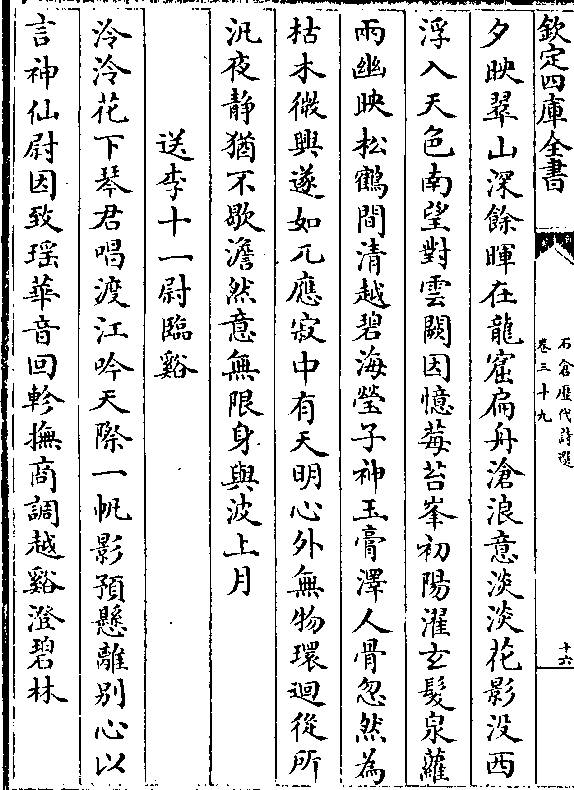 欽定四庫全書
石倉歷代詩選
卷三十九
十六
夕映翠山深餘暉在龍窟扁舟滄浪意淡淡花影没西
浮入天色南望對雲闕因憶莓苔峯初陽濯玄髮泉蘿
兩幽映松鶴間清越碧海瑩子神玉膏澤人骨忽然為
枯木微興遂如兀應寂中有天明心外無物環迴從所
汎夜静猶不歇澹然意無限身與波上月
送李十一尉臨谿
泠泠花下琴君唱渡江吟天際一帆影預懸離别心以
言神仙尉因致瑶華音回軫撫商調越谿澄碧林